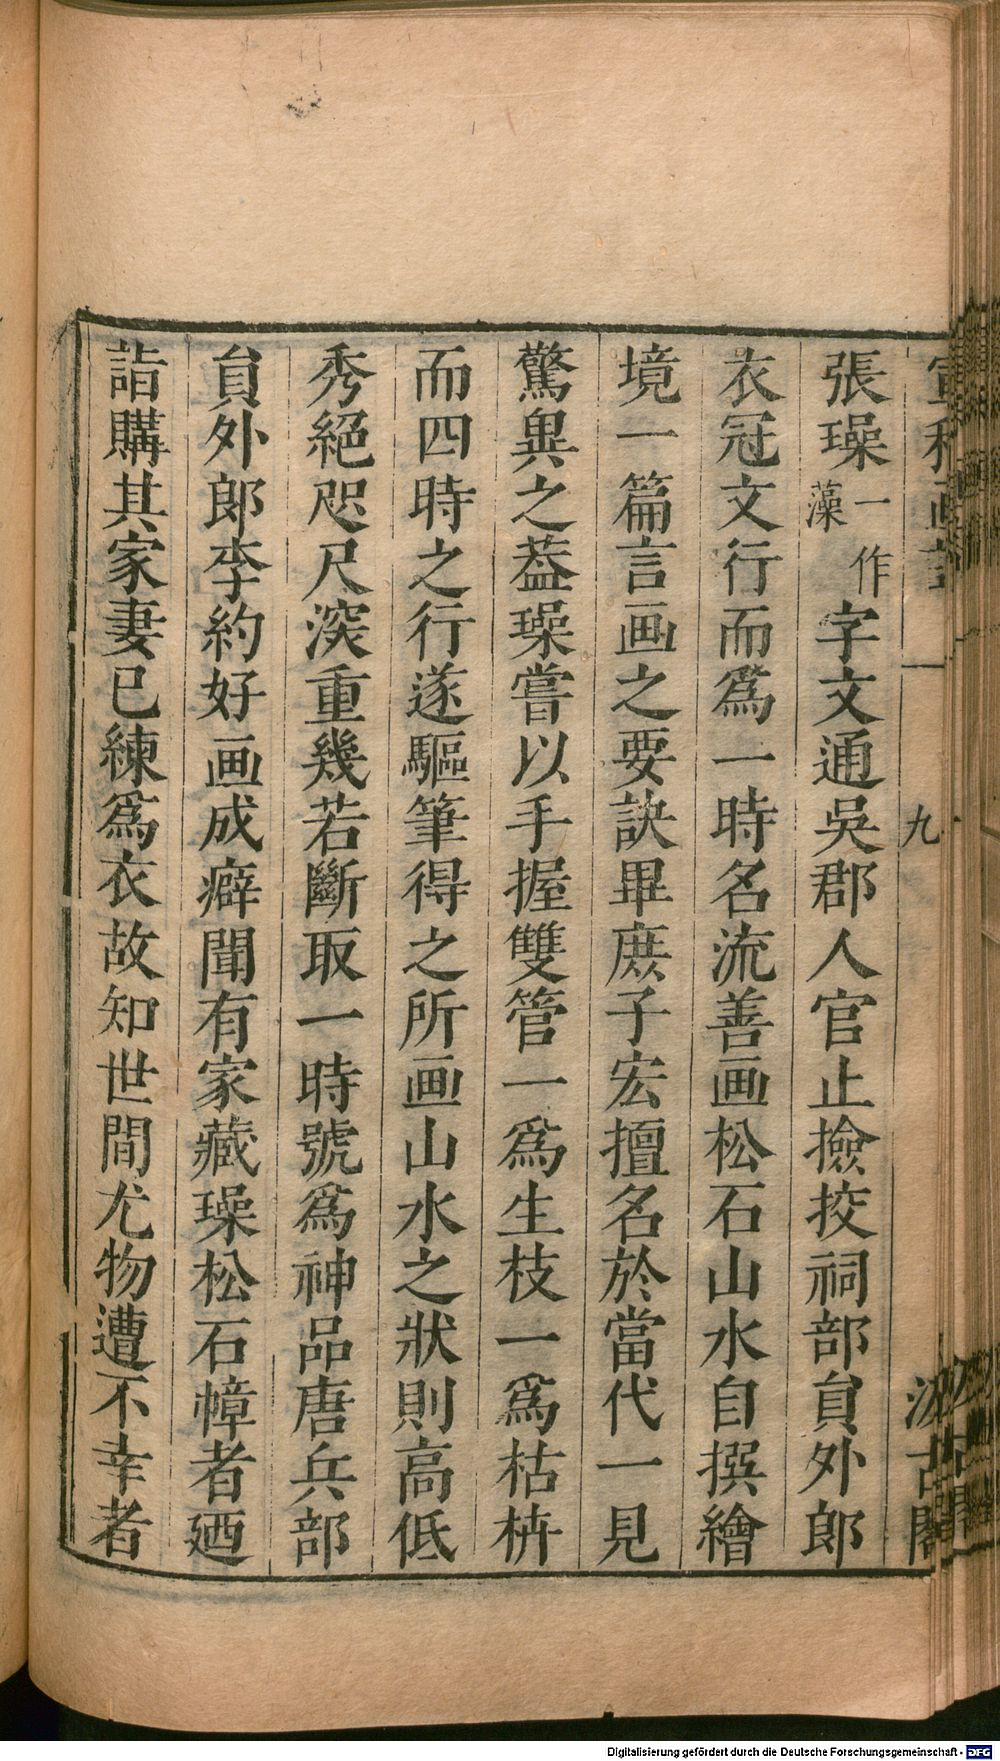 張璪一作藻字文通吳郡人官止撿挍祠部員外郎
衣冠文行而爲一時名流善画松石山水自撰繪
境一篇言画之要訣畢庶子宏擅名於當代一見
驚異之葢璪嘗以手握雙管一爲生枝一爲枯枿
而四時之行遂驅筆得之所画山水之狀則高低
秀絕咫尺深重幾若斷取一時號爲神品唐兵部
員外郎李約好画成癖聞有家藏璪松石幛者廼
詣購其家妻已練爲衣故知世間尤物遭不幸者
九
汲古閣
Digitalisierung gefördert durch die Deutsche Forschungsgemeinschaft - DFG